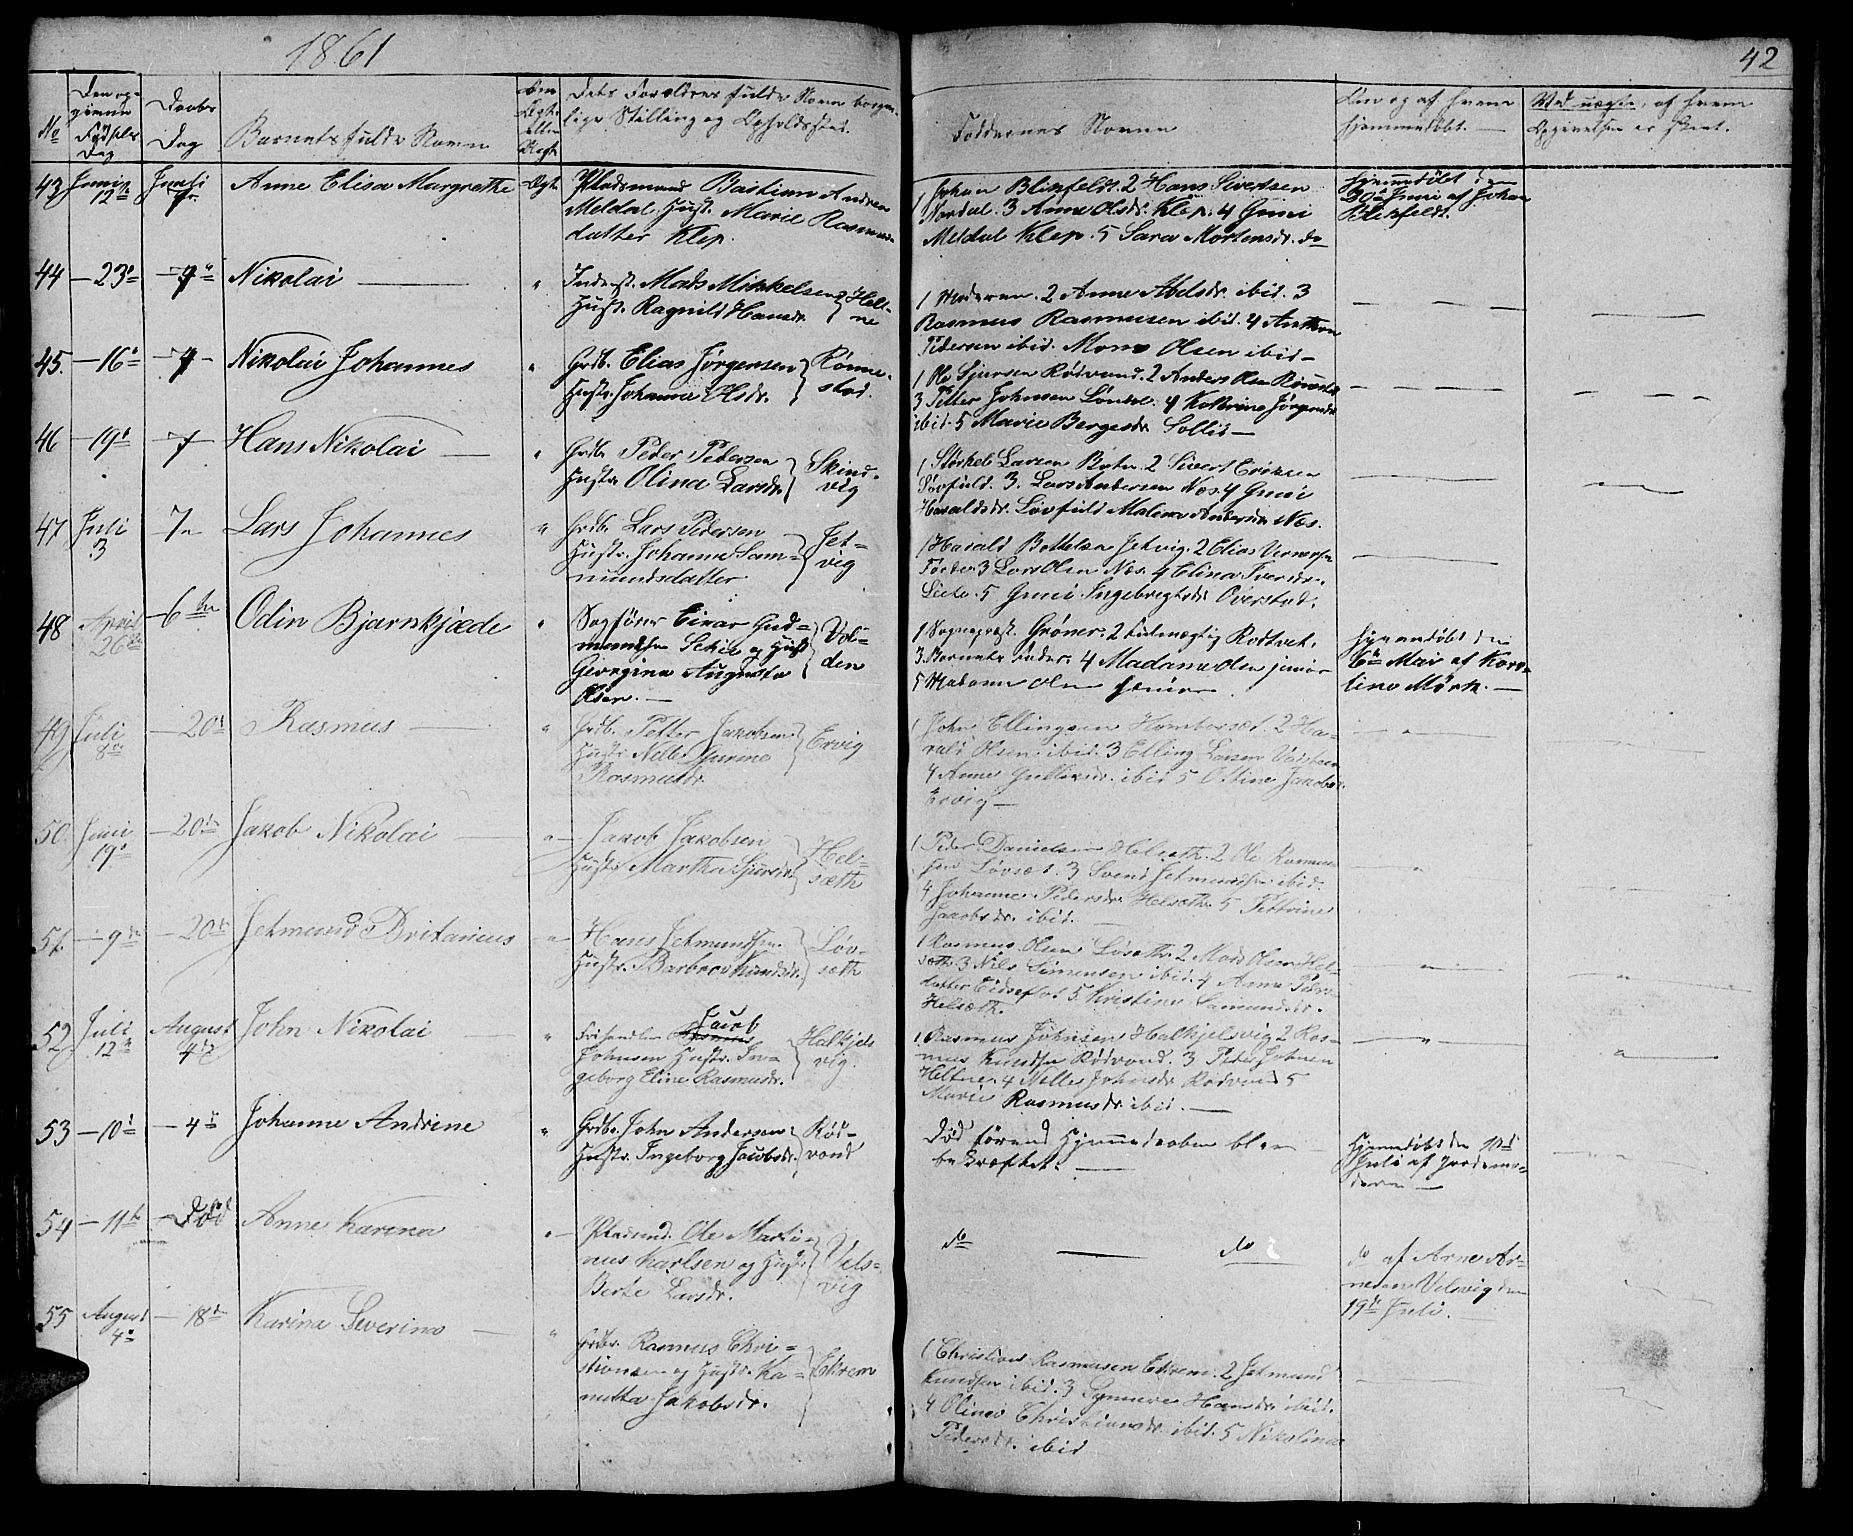 1861
42
No
Den op-
givne
Fødsels
Dag
Daabs
Dag
Barnets fulde Navn
Om
Ægte
eller
Uægte
Dets Forældres fulde Navn borger-
lige Stilling og Opholdssted.
Faddernes Navne
Om og af hvem
hjemmedøbt.
Ved uægte, af hvem
Opgivelsen er skeet.
43 Juni 12te Juli Anne Elisa Margrethe Ægte
Pladsmand Bastian Andrea
Meldal Hust. Marie Rasmus-
datter Klep.
1 Johan Blixfeldt. 2 Hans Sivertsen
Nordal. 3 Anne Olsdr. Klep. 4 Guni
Meldal Klep. 5 Sara Mortensdr. do
Hjemmedøbt den
30te Juni af Johan
Blixfeldt.
44 — 23de — 7de Nikolai — "
Inderst. Mads Mikkelsen
Hust. Ragnild Hansdr.
Helt-
ne
1 Moderen. 2 Anne Abelsdr. ibid. 3
Rasmus Rasmusen ibid. 4 Anthon
Pedersen ibid. Mons Olsen ibid —
45. — 16de — 7 — Nikolai Johannes "
Grdb. Elias Jørgensen
Hustr. Johanne Olsdr.
Rønne-
stad.
1 Ole Sjursen Rødvand. 2 Anders Olsen Rønnestad
3 Petter Johnsen 4 Kathrine Jørgensdr
ibid. 5 Marie Bergesdr. Sollid —
46 — 19de — 7 Hans Nikolai — "
Grdbr Peder Pedersen
Hustr Olina Larsdr.
Skind-
vig
1 Størkel Larsen 2 Sivert
Løvfuld. 3. Lars Andersen Næs 4 Guni
Haraldsdr. Løvfuld Malene Andersdr Næs.
47 Juli 3 7de Lars Johannes "
Grdb. Lars Pedersen
Hustr. Johanne Sam-
mundsdatter
Jet-
vig
1 Harald Bottelsen Jetvig. 2 Elias
3 Lars Olsen Næs. 4 Elina Iversdr.
5 Guni Ingebrigtsdr Overstad.
48 April 26de — 6te Odin Bjarnkjæde "
Sagfører Einar Gud-
mundsen Schie og Hust
Georgine Augusta
Olsen. —
Vol-
den
1 Sogneprest. Grøner. 2 Fuldmægtig Rodtvet.
3. Barnets Fader. 4 Madame Olsen junior
5 Madame Olsen senior
Hjemmedøbt den
6te Mai af Karo-
line Mørk. —
49 Juli 8de — 20de Rasmus — "
Grdb. Petter Jacobsen
Hustr Nelle Gurine
Rasmusdr.
Ervig
1 John Ellingsen 2 Ha-
rald Olsen ibid. 3 Elling Larsen
4 Anne ibid 5 Oltine Jakobsdr
Ervig —
50. Juni 19de — 20de Jakob Nikolai — " —
Jakob Jakobsen
Hustr. Martha Sjursdr.
Hel-
sæth
1 Peder Danielsen Helsæth. 2 Ole Rasmus-
sen Løvsæt. 3 Svend Jetmundsen ibid.
4 Johanne Pedersdr Helsæth. 5 Pettrine
Jacobsdr. ibid. —
51. — 9de — 20de Jetmund Britanius
Hans Jetmundsen
Hustr. Barbro Knudsdr.
Løv-
sæth
1 Rasmus Olsen Løsæth. 2 Mads Olsen Hel-
sæth. 3 Nils Simensen ibid. 4 Anne Peders-
datter 5. Kristine Samundsdr.
Helsæth.
52 Juli 12te August 4de John Nikolai — "
Frihandler Jacob
Johnsen Hustr. In-
geborg Eline Rasmusdr.
Halkjels
vig.
1 Rasmus Johnsen Halkjelsvig 2 Ras-
mus Knudsen Rødvand. 3 Peder Johnsen
Heltne. 4 Nelle Johnsdr Rødvand 5
Marie Rasmusdr ibid. —
53 — 10de — 4de Johanne Andrine "
Grdbr. John Andersen
Hustr. Ingeborg Jacobsdr.
Rød-
vand
Død førend Hjemmedaaben blev
bekræftet. —
Hjemmedøbt den 10de
Juli af Jordemo-
deren —
54 — 11te — Død Anne Karina " —
Pladsmd. Ole Marti-
nus Karlsen og Hustr
Berte Larsdr.
Vels-
vig
do — do
do af Arne Ar-
nesen Velsvig den
19de Juli. —
55 August 4de — 18de Karina Severina — "
Grdbr. Rasmus Chri-
stiansen og Hustr. Ka-
nutta Jakobsdr.
Ekrem
1 Christian Rasmusen Ekrem. 2 Jetmund
Knudsen ibid. 3 Synneve Hansdr ibid.
4 Olina Christiansdr ibid. 5 Nikolina
Pedersdr. ibid